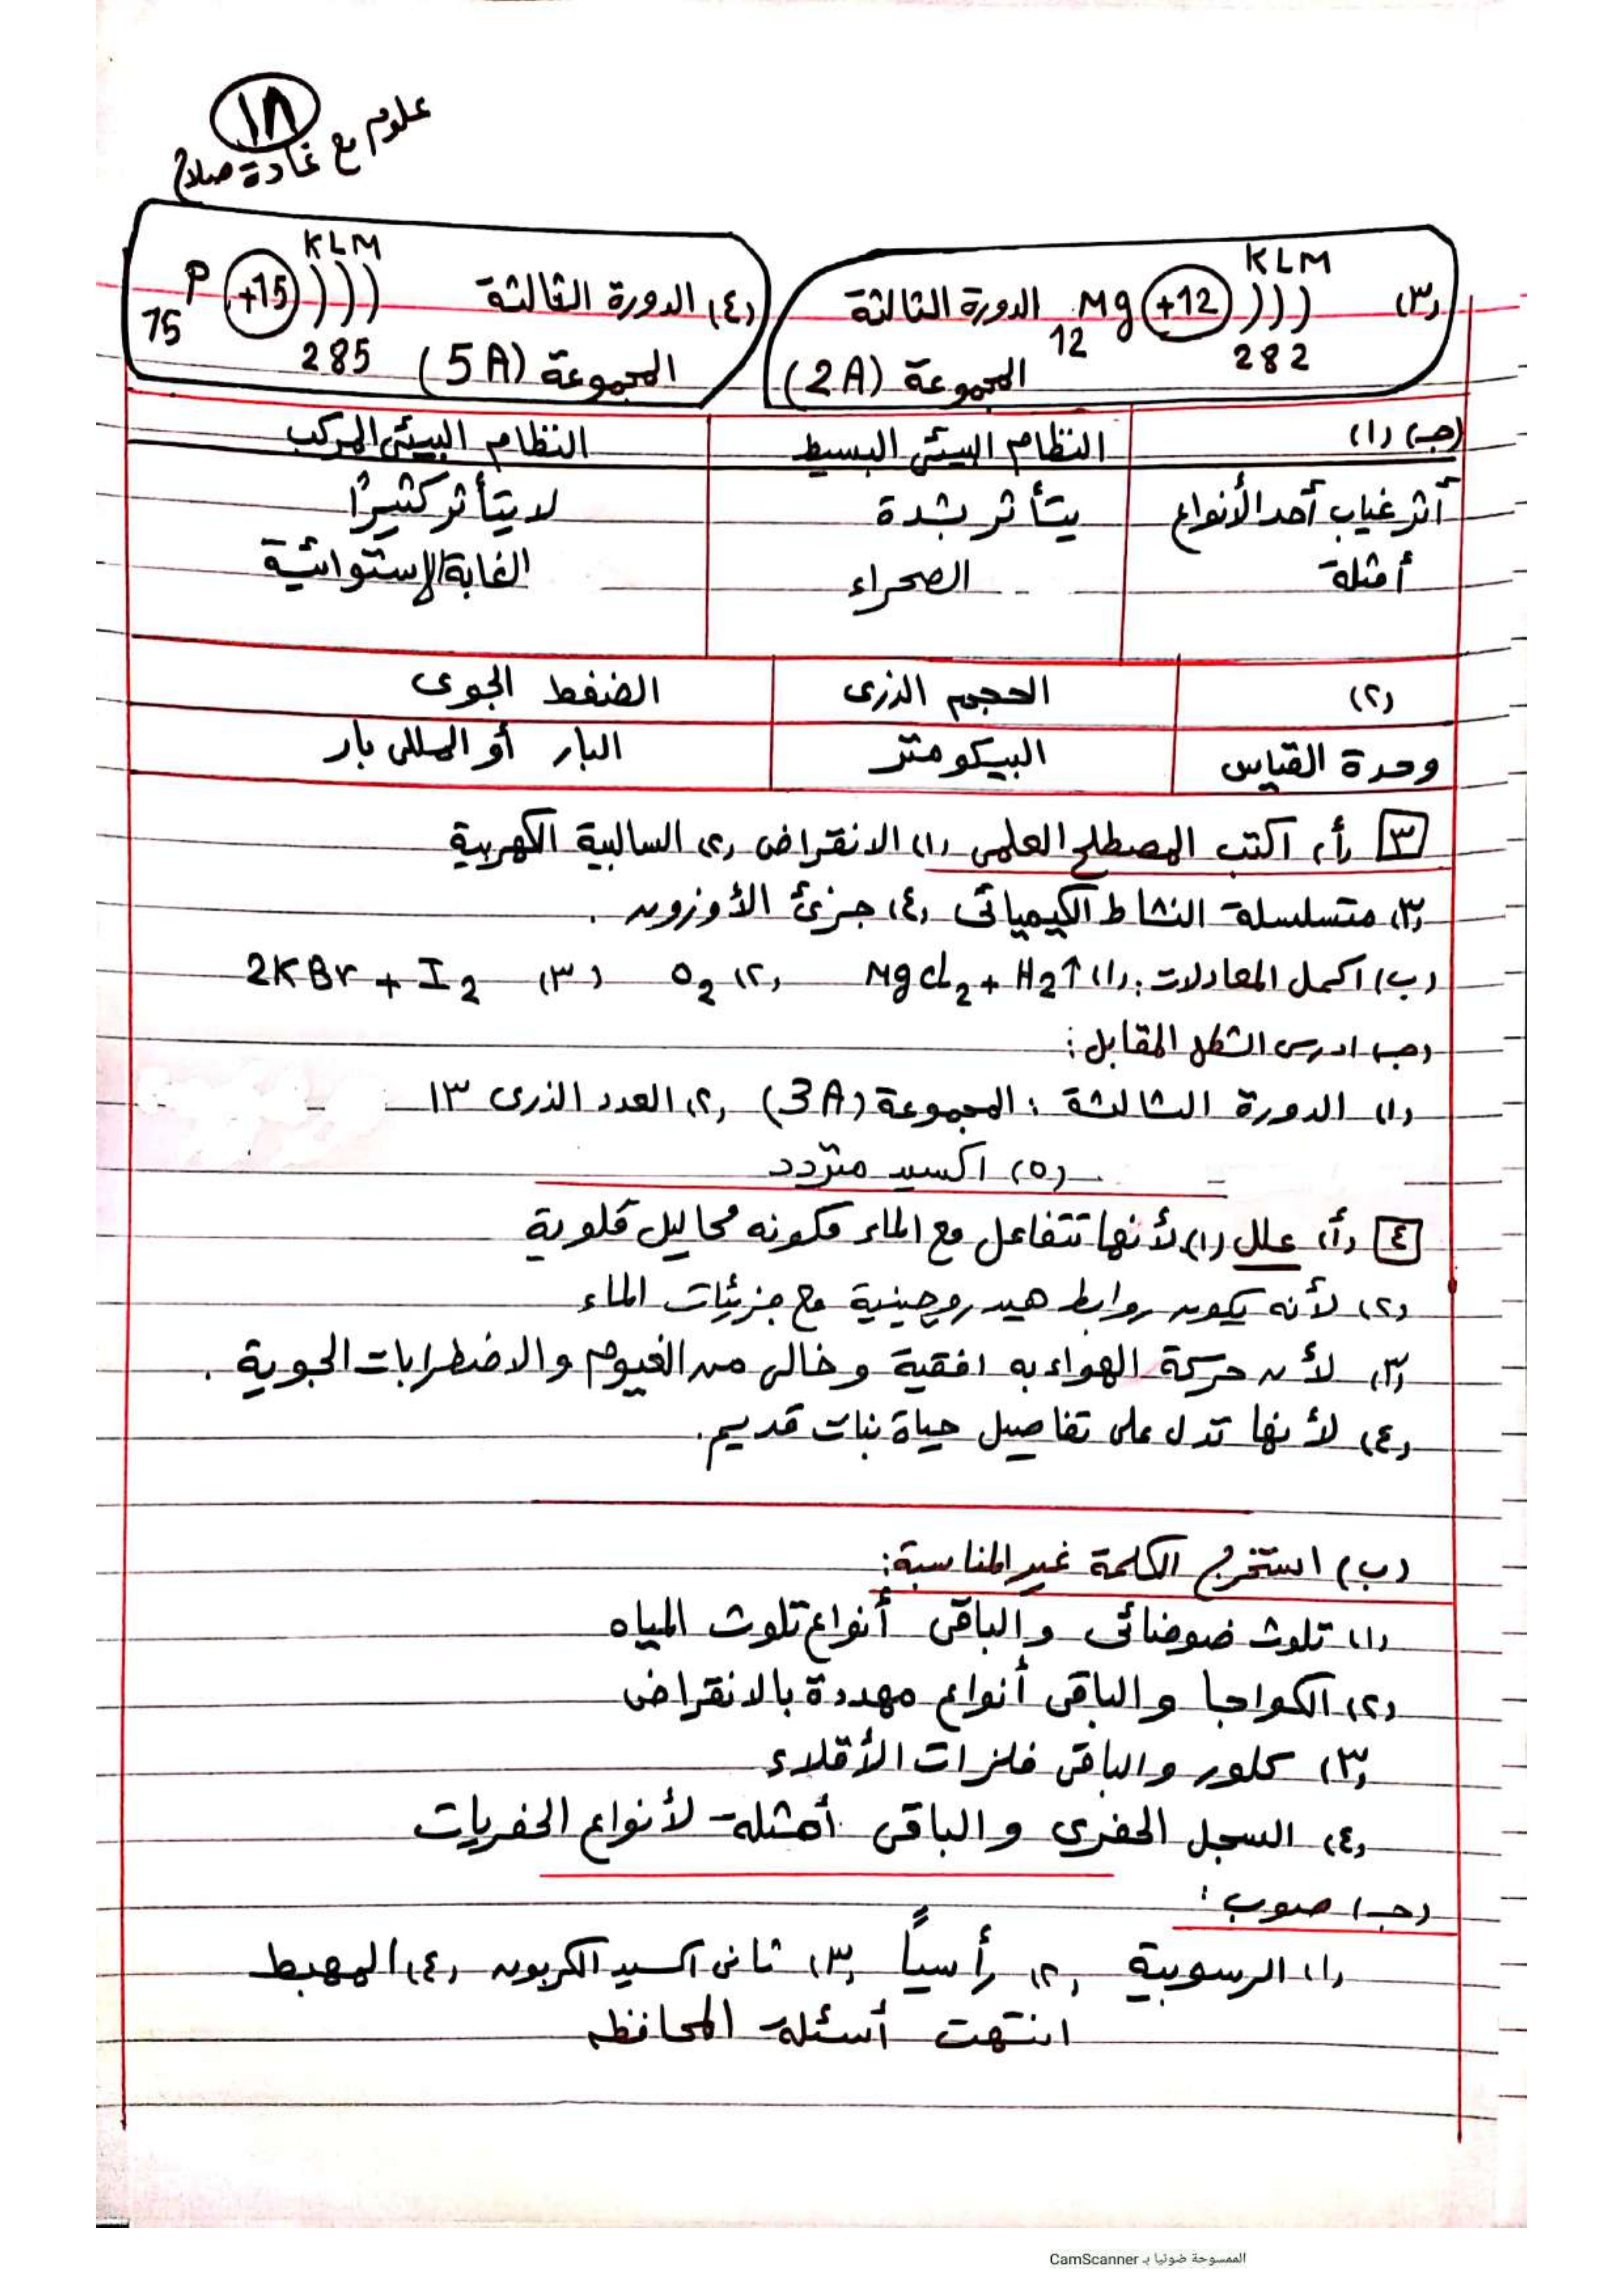 ١٨
علوم مع غادة صلاح
(٣) Mg 12 +12 K L M 2 8 2 الدورة الثالثة المجموعة (2A)
(٤) P 15 +15 K L M 2 8 5 الدورة الثالثة المجموعة (5A)
(جـ) (١) النظام البيئى البسيط النظام البيئى المركب
أثر غياب أحد الأنواع يتأثر بشدة لا يتأثر كثيرًا
أمثلة الصحراء الغابة الإستوائية
(٢) الحجم الذرى الضغط الجوى
وحدة القياس البيكومتر البار أو المللى بار
٣ (أ) اكتب المصطلح العلمى (١) الانقراض (٢) السالبية الكهربية
(٣) متسلسلة النشاط الكيميائى (٤) جزئ الأوزون .
(ب) اكمل المعادلات : (١) MgCl₂ + H₂↑ (٢) O₂ (٣) 2KBr + I₂
(جـ) ادرس الشكل المقابل :
(١) الدورة الثالثة ، المجموعة (3A) (٢) العدد الذرى ١٣
(٥) اكسيد متردد
٤ (أ) علل (١) لأنها تتفاعل مع الماء مكونه محاليل قلوية
(٢) لأنه يكون روابط هيدروجينية مع جزيئات الماء
(٣) لأن حركة الهواء به افقية وخالى من الغيوم والاضطرابات الجوية .
(٤) لأنها تدل على تفاصيل حياة نبات قديم.
(ب) استخرج الكلمة غير المناسبة :
(١) تلوث ضوضائى والباقى أنواع تلوث المياه
(٢) الكواجا والباقى أنواع مهددة بالانقراض
(٣) كلور والباقى فلزات الأقلاء
(٤) السجل الحفرى والباقى أمثلة لأنواع الحفريات
(جـ) صوب :
(١) الرسوبية (٢) رأسياً (٣) ثانى اكسيد الكربون (٤) المهبط
انتهت أسئلة المحافظه
الممسوحة ضوئيا بـ CamScanner